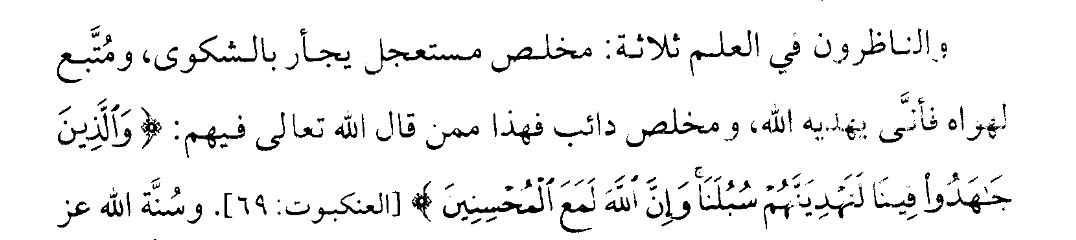 والناظرون في العلم ثلاثة: مخلص مستعجل يجأر بالشكوى، ومُتَّبع
لهواه فأنَّى يهديه الله، ومخلص دائب فهذا ممن قال الله تعالى فيهم: ﴿ وَٱلَّذِينَ
جَٰهَدُوا۟ فِينَا لَنَهْدِيَنَّهُمْ سُبُلَنَا ۚ وَإِنَّ ٱللَّهَ لَمَعَ ٱلْمُحْسِنِينَ ﴾ [العنكبوت: ٦٩]. وسُنَّة الله عز